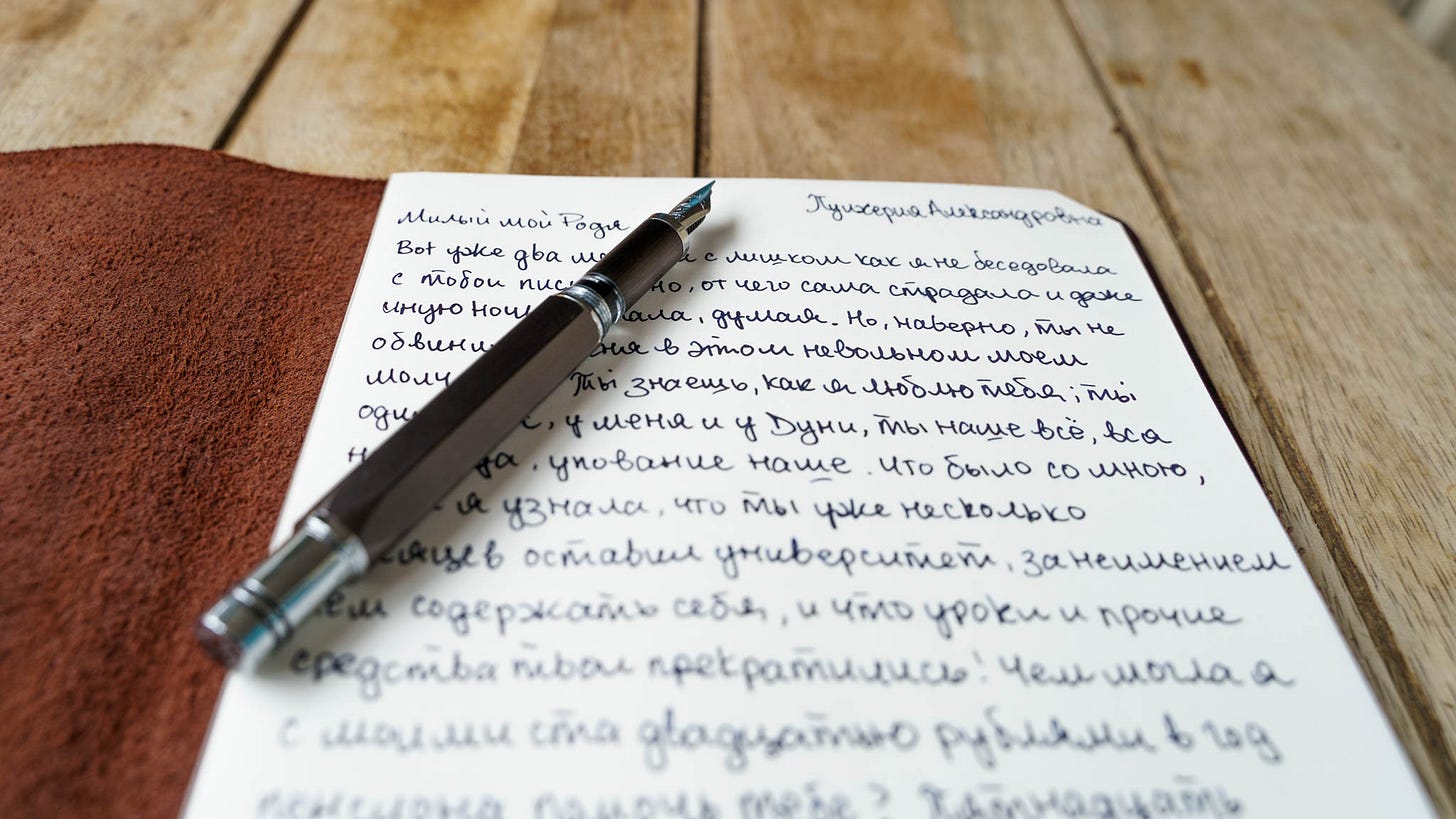 Милый мой Родя
Пулхерия Александровна
Вот уже два с лишком как я не беседовала
с тобои , от чего сама страдала и даже
иную , думая. Но, наверно, ты не
в этом невольном моем
Ты знаешь, как я люблю тебя; ты
, у меня и у Дуни, ты наше всё, вся
, упование наше. Что было со мною,
я узнала, что ты уже несколько
оставил университет, за неимением
содержать себя, и что уроки и прочие
средства твои прекратились! Чем могла я
с моими ста двадцатью рублями в год
пенсиона помочь тебе? Пятнадцать